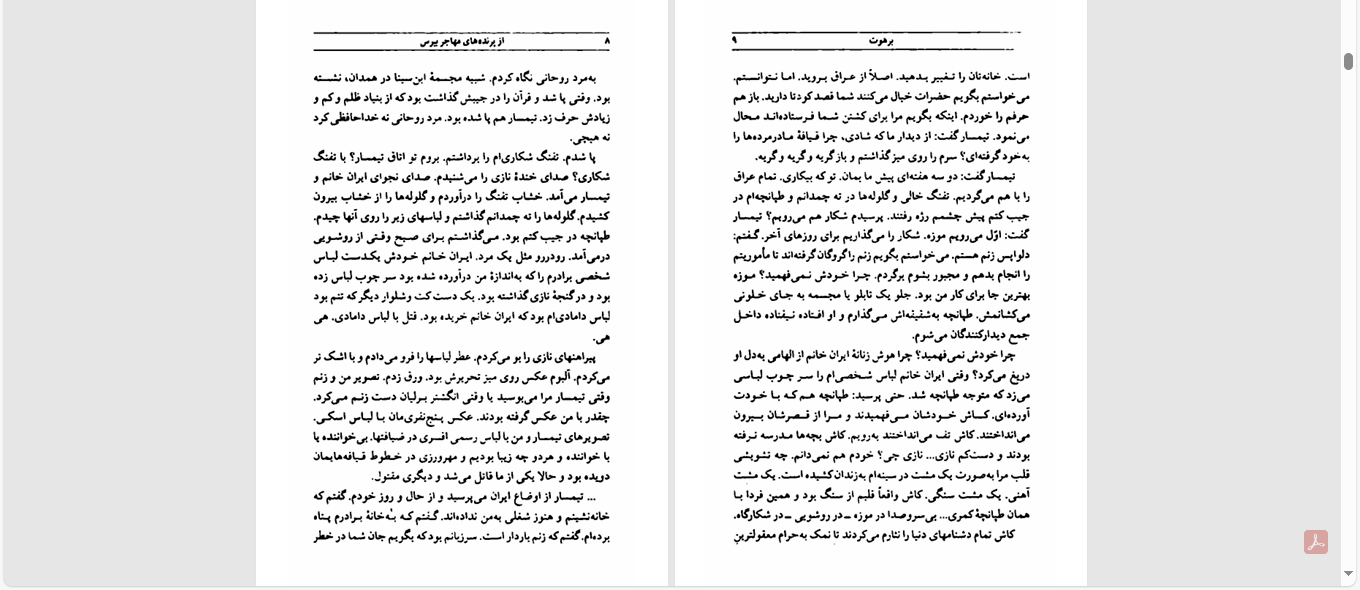 ۸ از پرنده‌های مهاجر بپرس
به‌مرد روحانی نگاه کردم. شبیه مجسمهٔ ابن‌سینا در همدان، نشسته
بود. وقتی پا شد و قرآن را در جیبش گذاشت بود که از بنیاد ظلم و کم و
زیادش حرف زد. تیمسار هم پا شده بود. مرد روحانی نه خداحافظی کرد
نه هیچی.
پا شدم. تفنگ شکاری‌ام را برداشتم. بروم تو اتاق تیمسار؟ با تفنگ
شکاری؟ صدای خندهٔ نازی را می‌شنیدم. صدای نجوای ایران خانم و
تیمسار می‌آمد. خشاب تفنگ را درآوردم و گلوله‌ها را از خشاب بیرون
کشیدم. گلوله‌ها را ته چمدانم گذاشتم و لباسهای زیر را روی آنها چیدم.
طپانچه در جیب کتم بود. می‌گذاشتم برای صبح وقتی از روشویی
درمی‌آمد. رودررو مثل یک مرد. ایران خانم خودش یکدست لباس
شخصی برادرم را که به‌اندازهٔ من درآورده شده بود سر چوب لباس زده
بود و در گنجهٔ نازی گذاشته بود. یک دست کت و شلوار دیگر که تنم بود
لباس دامادی‌ام بود که ایران خانم خریده بود. قتل با لباس دامادی. هی
هی.
پیراهنهای نازی را بو می‌کردم. عطر لباسها را فرو می‌دادم و با اشک تر
می‌کردم. آلبوم عکس روی میز تحریرش بود. ورق زدم. تصویر من و زنم
وقتی تیمسار مرا می‌بوسید یا وقتی انگشتر برلیان دست زنم می‌کرد.
چقدر با من عکس گرفته بودند. عکس پنج‌نفری‌مان با لباس اسکی.
تصویرهای تیمسار و من با لباس رسمی افسری در ضیافتها. بی‌خواننده یا
با خواننده و هردو چه زیبا بودیم و مهرورزی در خطوط قیافه‌هایمان
دویده بود و حالا یکی از ما قاتل می‌شد و دیگری مقتول.
... تیمسار از اوضاع ایران می‌پرسید و از حال و روز خودم. گفتم که
خانه‌نشینم و هنوز شغلی به‌من نداده‌اند. گفتم که به‌خانهٔ برادرم پناه
برده‌ام. گفتم که زنم باردار است. سرزبانم بود که بگویم جان شما در خطر
برهوت ۹
است. خانه‌تان را تغییر بدهید. اصلاً از عراق بروید. اما نتوانستم.
می‌خواستم بگویم حضرات خیال می‌کنند شما قصد کودتا دارید. باز هم
حرفم را خوردم. اینکه بگویم مرا برای کشتن شما فرستاده‌اند محال
می‌نمود. تیمسار گفت: از دیدار ما که شادی، چرا قیافهٔ مادرمرده‌ها را
به‌خود گرفته‌ای؟ سرم را روی میز گذاشتم و باز گریه و گریه و گریه.
تیمسار گفت: دو سه هفته‌ای پیش ما بمان. تو که بیکاری. تمام عراق
را با هم می‌گردیم. تفنگ خالی و گلوله‌ها در ته چمدانم و طپانچه‌ام در
جیب کتم پیش چشمم رژه رفتند. پرسیدم شکار هم می‌رویم؟ تیمسار
گفت: اوّل می‌رویم موزه. شکار را می‌گذاریم برای روزهای آخر. گفتم:
دلواپس زنم هستم. می‌خواستم بگویم زنم را گروگان گرفته‌اند تا مأموریتم
را انجام بدهم و مجبور بشوم برگردم. چرا خودش نمی‌فهمید؟ موزه
بهترین جا برای کار من بود. جلو یک تابلو یا مجسمه به جای خلوتی
می‌کشانمش. طپانچه به‌شقیقه‌اش می‌گذارم و او افتاده نیفتاده داخل
جمع دیدارکنندگان می‌شوم.
چرا خودش نمی‌فهمید؟ چرا هوش زنانهٔ ایران خانم از الهامی به‌دل او
دریغ می‌کرد؟ وقتی ایران خانم لباس شخصی‌ام را سر چوب لباسی
می‌زد که متوجه طپانچه شد. حتی پرسید: طپانچه هم که با خودت
آورده‌ای. کاش خودشان می‌فهمیدند و مرا از قصرشان بیرون
می‌انداختند. کاش تف می‌انداختند به‌رویم. کاش بچه‌ها مدرسه نرفته
بودند و دست‌کم نازی... نازی چی؟ خودم هم نمی‌دانم. چه تشویشی
قلب مرا به‌صورت یک مشت در سینه‌ام به‌زندان کشیده است. یک مشت
آهنی. یک مشت سنگی. کاش واقعاً قلبم از سنگ بود و همین فردا با
همان طپانچهٔ کمری... بی‌سروصدا در موزه ــ در روشویی ــ در شکارگاه.
کاش تمام دشنامهای دنیا را نثارم می‌کردند تا نمک به‌حرام معقولترین